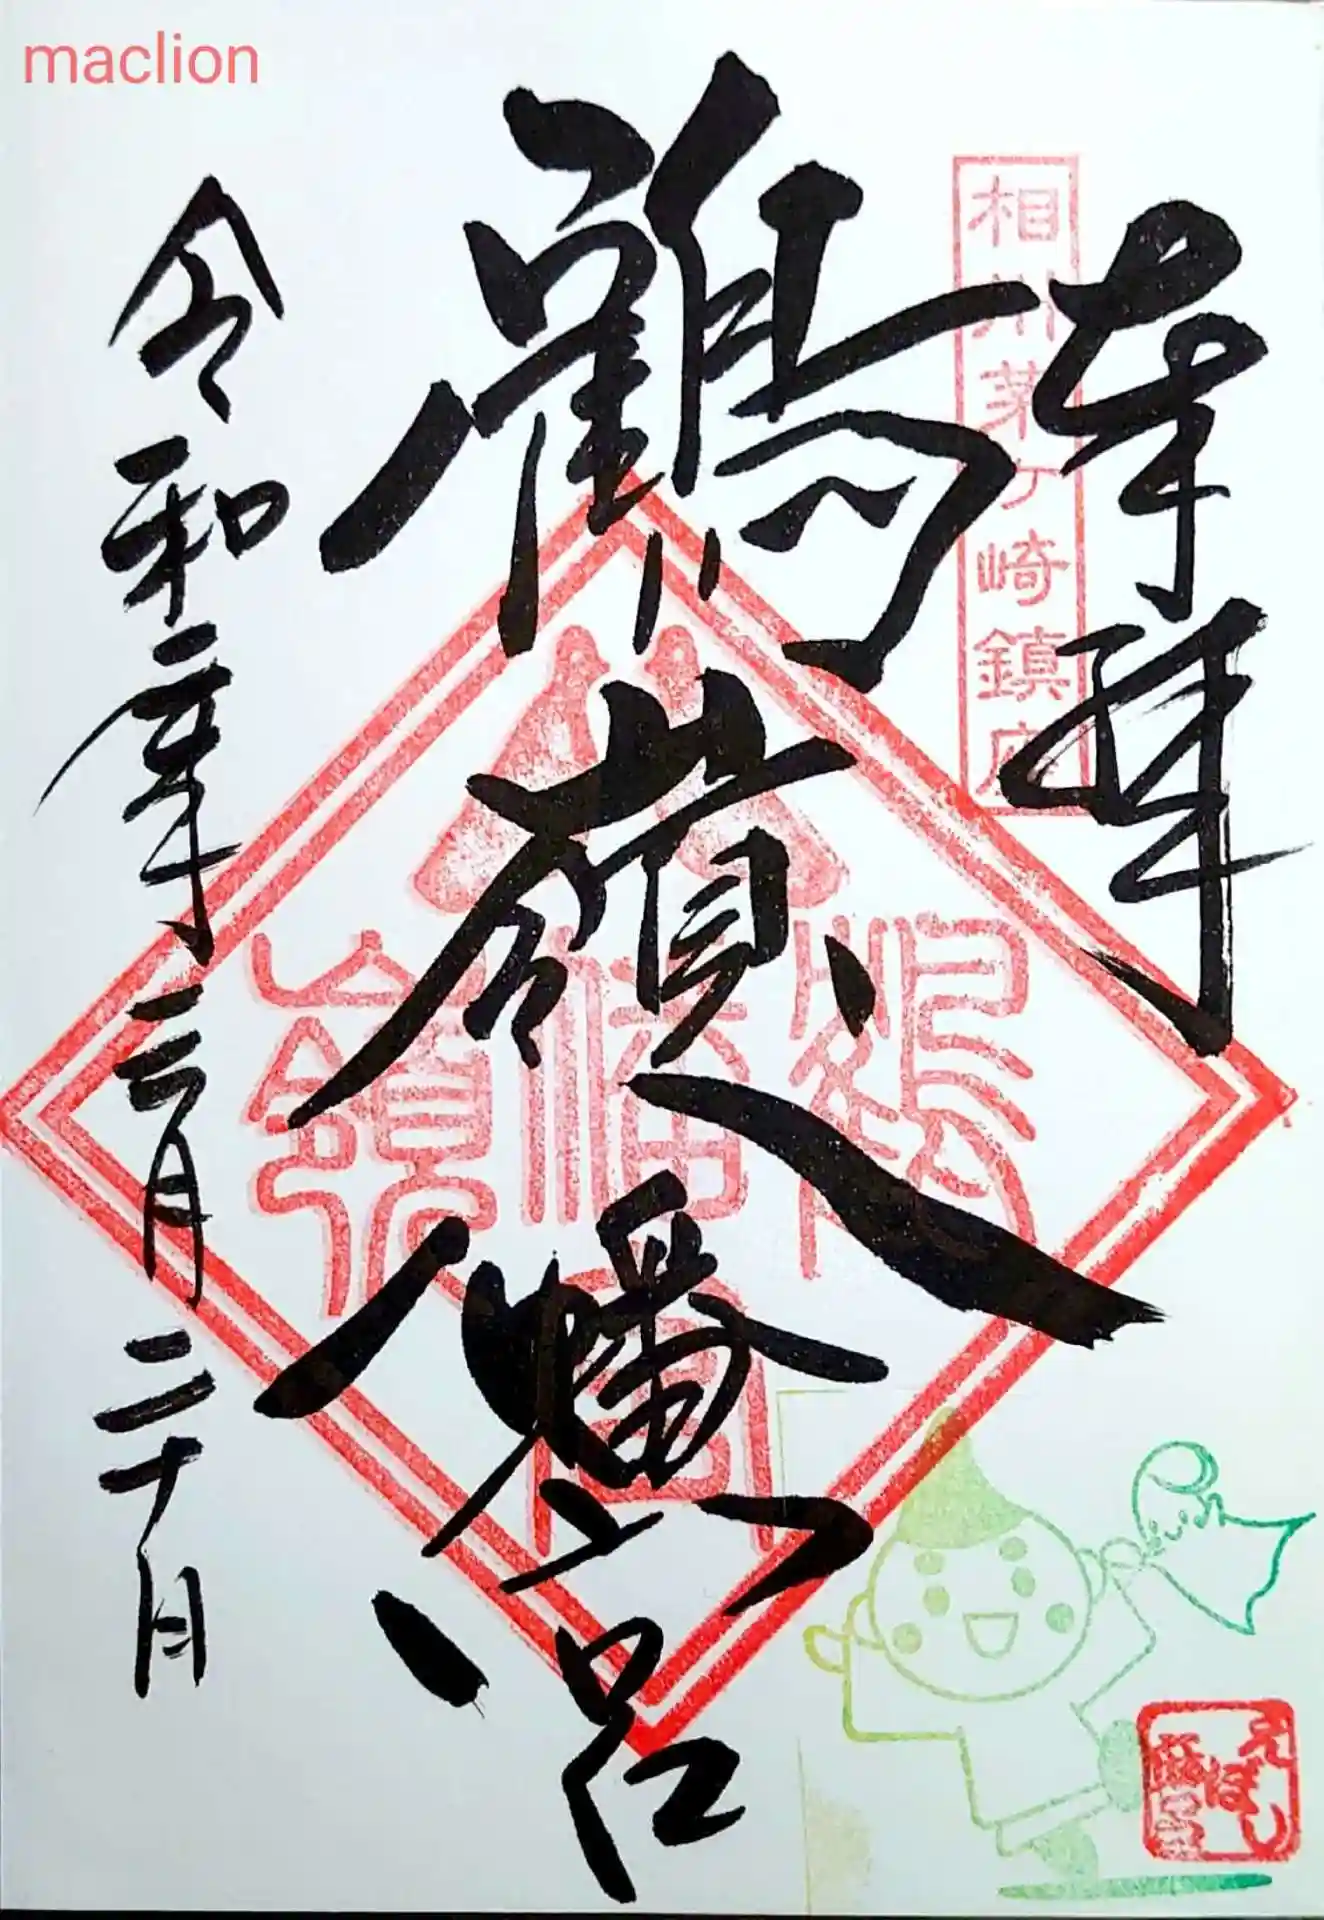 maclion
奉拝
相州茅ヶ崎鎮座
鶴嶺八幡宮
鶴
八幡宮
嶺
令和二年三月二十日
えぼし
麻呂